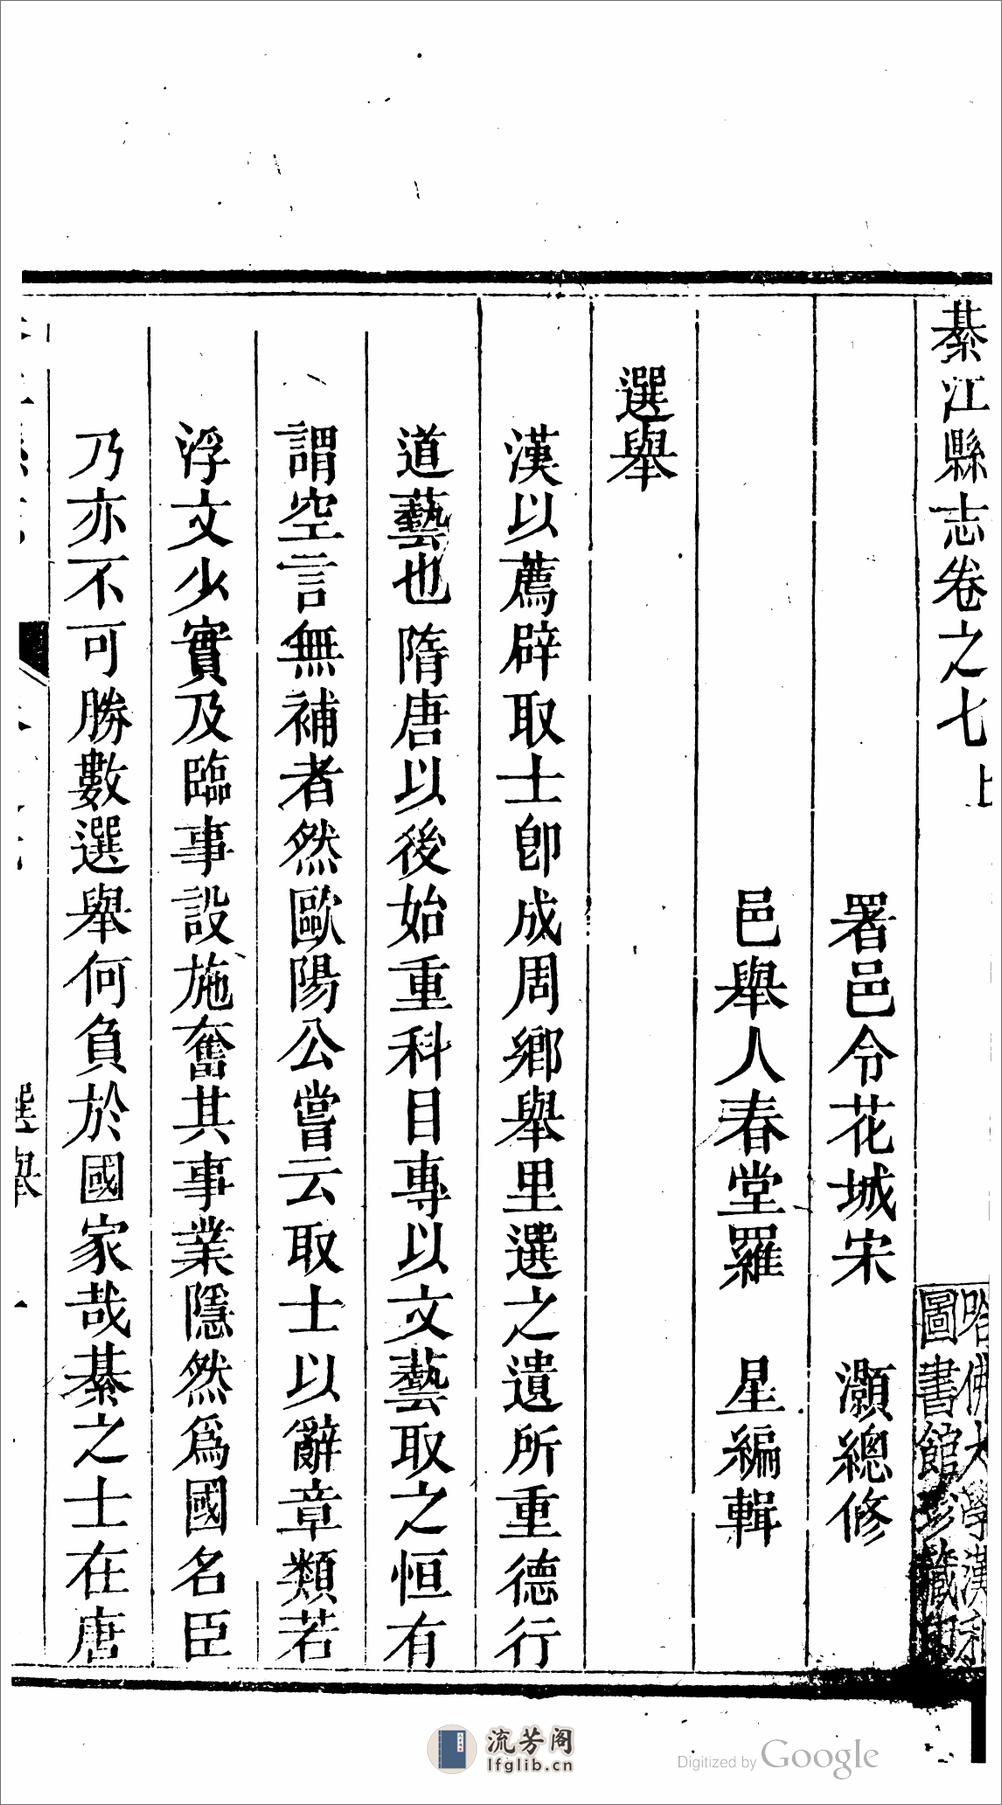 綦江縣志卷之七上
署邑令花城宋　灝總修
邑舉人春堂羅　星編輯
選舉
漢以薦辟取士卽成周鄉舉里選之遺所重德行
道藝也隋唐以後始重科目專以文藝取之恒有
謂空言無補者然歐陽公嘗云取士以辭章類若
浮文少實及臨事設施奮其事業隱然爲國名臣
乃亦不可勝數選舉何負於國家哉綦之士在唐
選舉　一
哈佛大學漢和
圖書館珍藏印
流芳阁
lfglib.cn
Digitized by Google